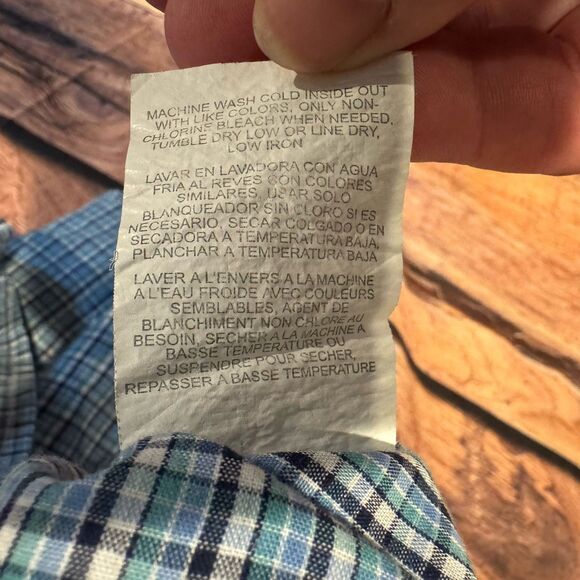 MACHINE WASH COLD INSIDE OUT
WITH LIKE COLORS, ONLY NON-
CHLORINE BLEACH WHEN NEEDED,
TUMBLE DRY LOW OR LINE DRY,
LOW IRON
LAVAR EN LAVADORA CON AGUA
FRIA AL REVES CON COLORES
SIMILARES, USAR SOLO
BLANQUEADOR SIN CLORO SI ES
NECESARIO, SECAR COLGADO O EN
SECADORA A TEMPERATURA BAJA,
PLANCHAR A TEMPERATURA BAJA
LAVER A L'ENVERS A LA MACHINE
A L'EAU FROIDE AVEC COULEURS
SEMBLABLES, AGENT DE
BLANCHIMENT NON CHLORE AU
BESOIN, SECHER A LA MACHINE A
BASSE TEMPERATURE OU
SUSPENDRE POUR SECHER,
REPASSER A BASSE TEMPERATURE